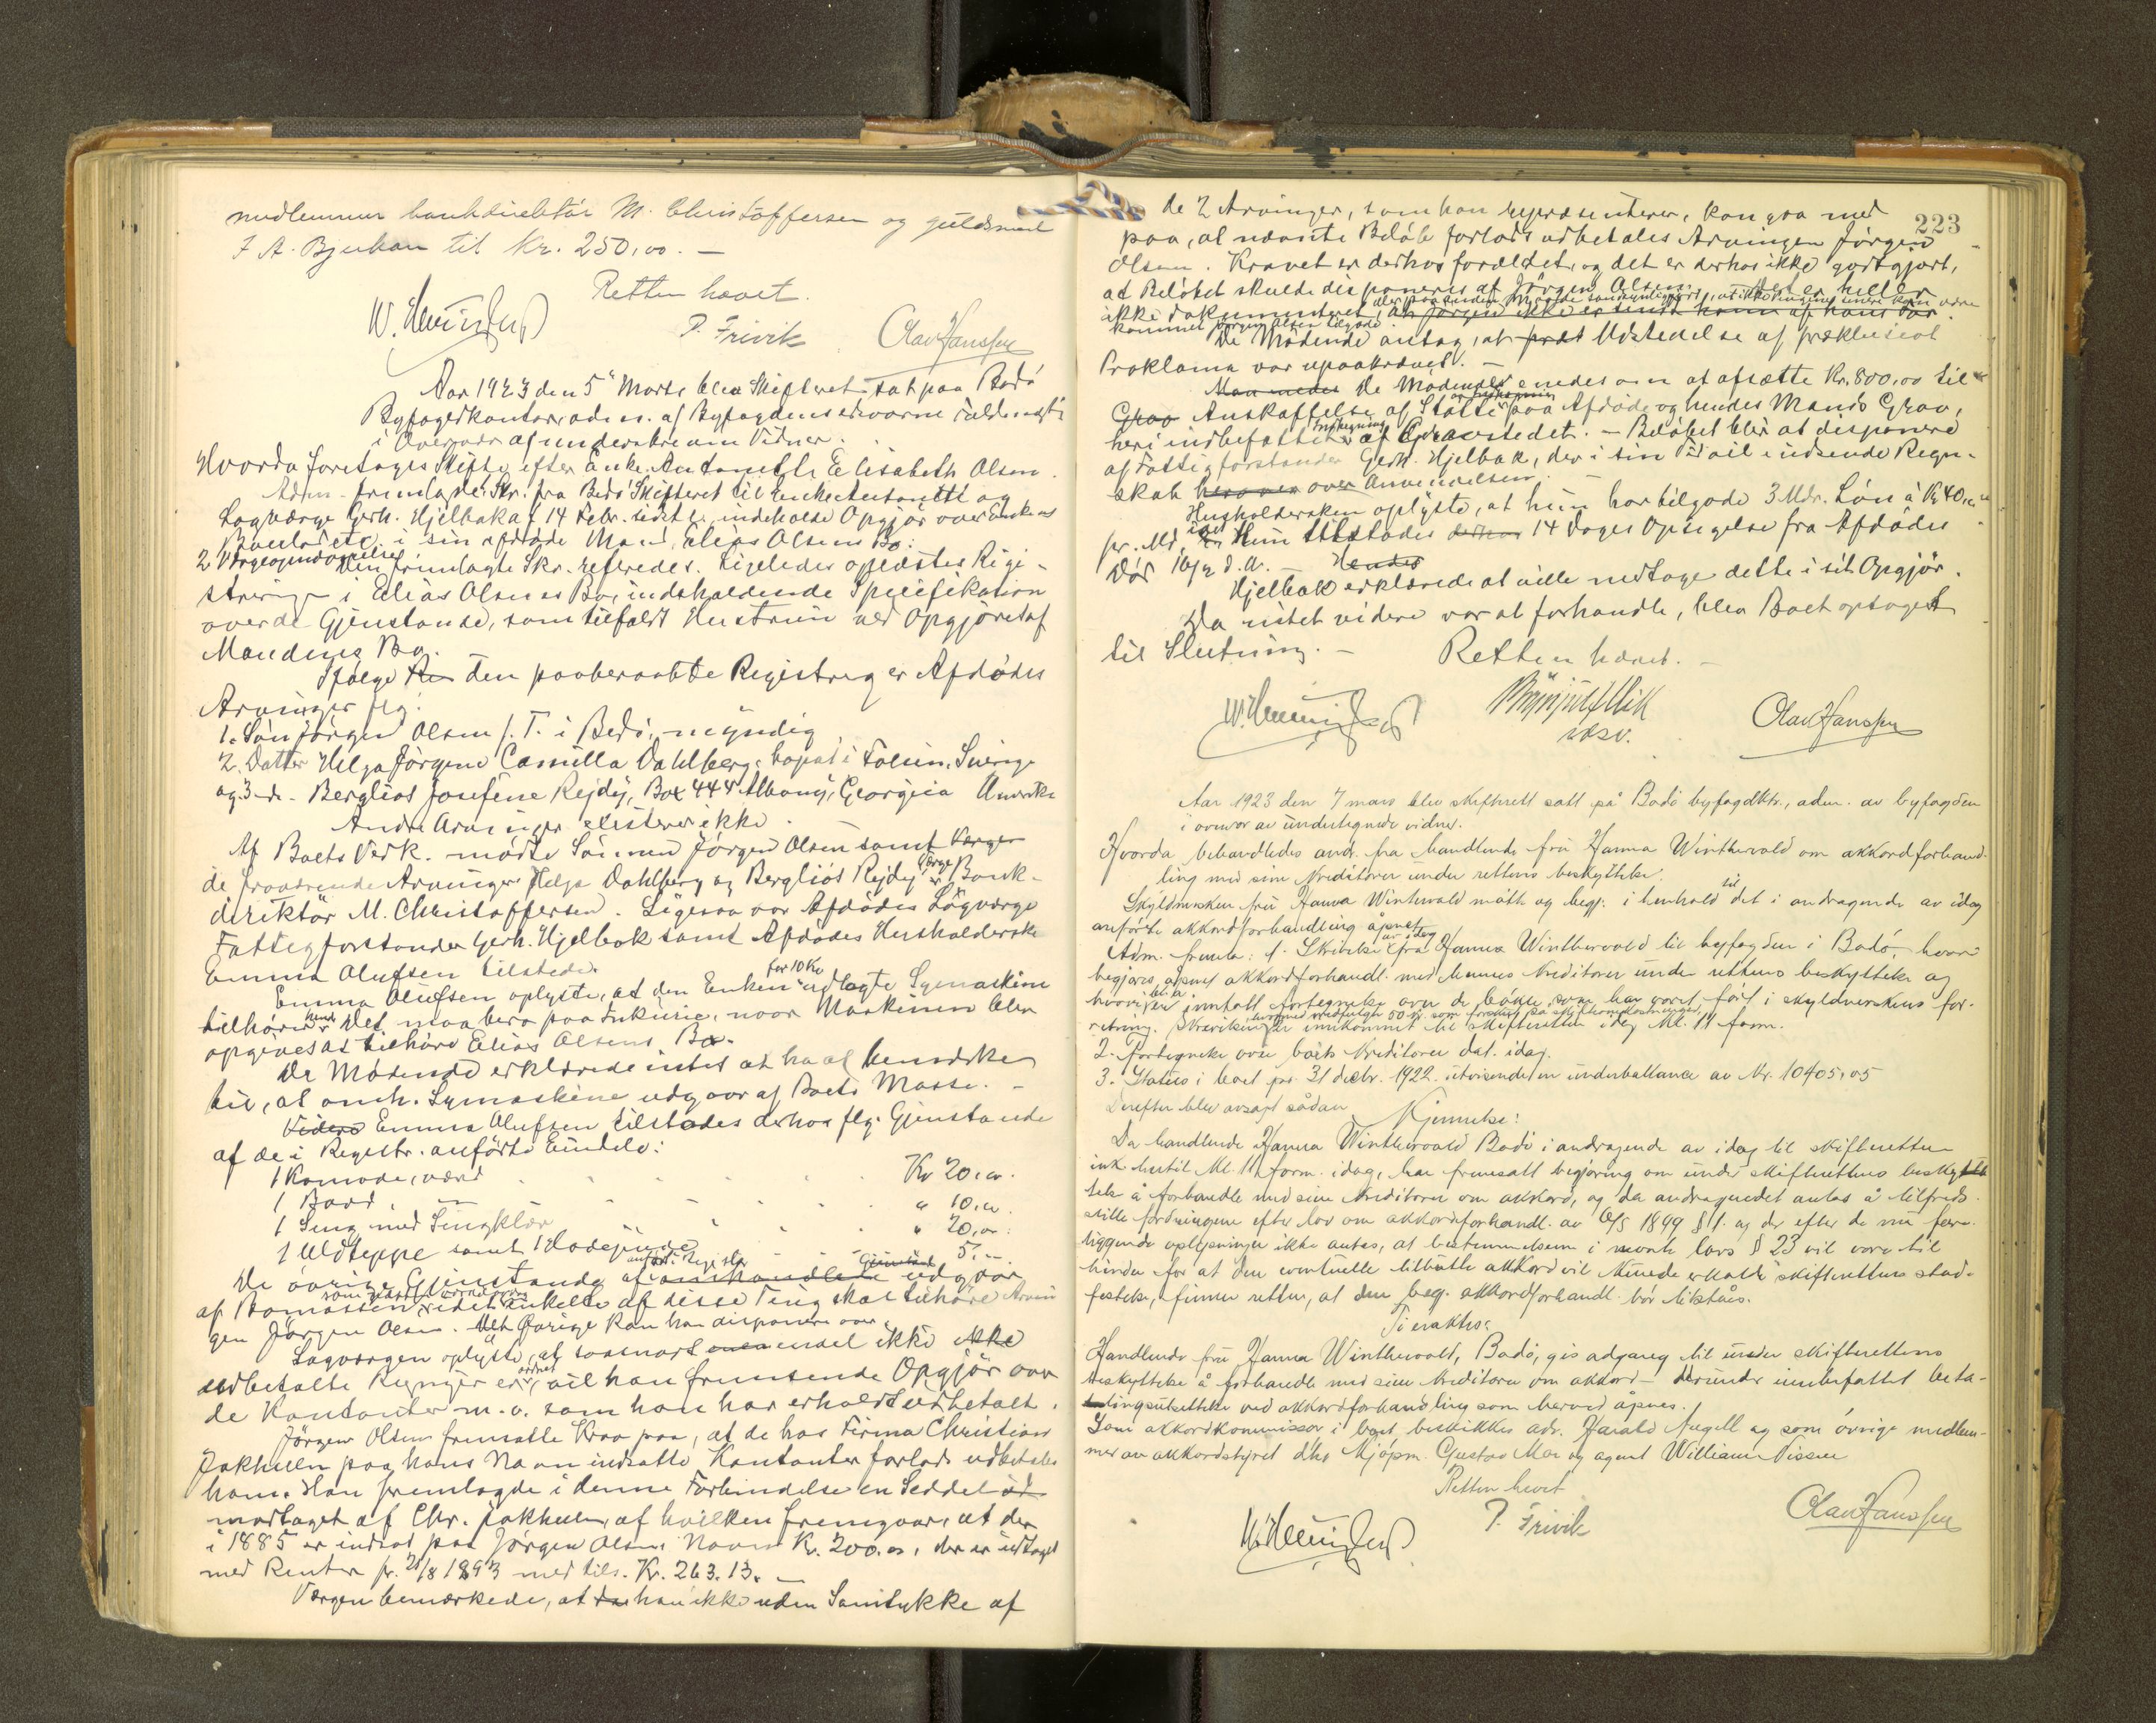 medlemmer bankdirektör M. Christoffersen og guldsmed
J. A. Bjerkan til Kr. 250,00. —
Retten hævet.
P. Frivik Olav Hanssen
Aar 1923 den 5' Marts blev Skifteret sat paa Bodö
Byfogedkontor, adm. af Byfogdens edsvorne Fuldmægtig
i Overvær af underskrevne Vidner.
Hvorda foretoges Skifte efter Enke Antonette Elisabeth Olsen.
Adm. fremlagde: Skr. fra Bodö Skifteret til Enke Antonette og
Lagværge Gerh. Hjelbak af 14 Febr. sidstl. indeholde Opgjör over Enkens
Boeslod etc. i sin afdöde Mand, Elias Olsens Bo:
2 Værgeopnævnelser
Den fremlagte Skr. refereredes. Ligeledes oplæstes Regi-
strering i Elias Olsens Bo, indeholdende Specifikation
over de Gjenstande, som tilfaldt Hustruen ved Opgjöret af
Mandens Bo.
Ifölge den paaberaabte Registrering er Afdödes
Arvinger flg.
1. Sön Jörgen Olsen p. T. i Bodö, myndig
2. Datter Helga Jörgine Camilla Dahlberg, bopat i Falun, Sverige
og 3 - do - Bergliot Josefine Rejdy, Box 444 Albany, Georgia Amerika
Andre Arvinger existerer ikke.
Af Boets Vedk. mödte Sönnen Jörgen Olsen samt Værgen
de fraværende Arvinger Helga Dahlberg og Bergliot Rejdy Værge Bank-
direktör M. Christoffersen. Ligesaa var Afdödes Lagværge
Fattigforstander Gerh. Hjelbak samt Afdödes Husholderske
Emma Olufsen tilstede.
Emma Olufsen oplyste, at den Enken for 10 Kr udlagte Symaskine
tilhörer hende. Det maa bero paa Inkurie, naar Maskinen blev
opgivet at tilhöre Elias Olsens Bo.
De Mödende erklærede intet at have at bemærke
til, at omh. Symaskine udgaar af Boets Masse. —
Videre Emma Olufsen tilstodes derhos flg. Gjenstande
af de i Registr. anförte Eiendele:
1 Komode, værd Kr 20.00.
1 Bord, " 10.00.
1 Seng med Sengklær " 20.00.
1 Uldteppe samt 1 Hodepude 5.-
De övrige Gjenstande anfört i Registr udgaar
af Bomassen idet enkelte af disse Ting skal tilhöre Arvin
gen Jörgen Olsen. Det övrige kan han disponere over.
Lagværgen oplyste, at saasnart endel ikke ikke
udbetalte Regninger er ordnet, vil han fremsende Opgjör over
de Kontanter m. v. som han har erholdt udbetalt.
Jörgen Olsen fremsatte Krav paa, at de hos Firma Christian
Jakhelln paa hans Navn indsatte Kontanter forlods udbetales
ham. Han fremlagde i denne Forbindelse en Seddel
modtaget af Chr. Jakhelln, af hvilken fremgaar, at der
i 1885 er indsat paa Jörgen Olsens Navn Kr. 200.00, der er udtaget
med Renter pr. 21/8 1893 med tils. Kr. 263.13. —
Værgen bemærkede, at han ikke uden Samtykke af
223
de 2 Arvinger, som han repræsenterer, kan gaa med
paa, at nævnte Belöb forlods udbetales Arvingen Jörgen
Olsen. Kravet er derhos forældet, og det er derhos ikke godtgjort,
at Belöbet skulde disponeres af Jörgen Olsen. Det er heller
ikke dokumenteret, eller paa anden Maade sandsynliggjort, at ikke Pengene senere kan være
kommet Jörgen Olsen tilgode.
De Mödende antog, at Udstedelse af præklusivt
Proklama var upaakrævet. —
De Mödende enedes om at afsætte Kr. 800,00 til
Grav Anskaffelse af Stötte paa Afdöde og hendes Mands Grav,
heri indbefattet Indhegning af Gravstedet. — Belöbet blir at disponere
af Fattigforstander Gerh. Hjelbak, der i sin Tid vil indsende Regn-
skab over Anvendelsen.
Husholdersken oplyste, at hun har tilgode 3 Mdr. Lön à Kr 40,00
pr. Md. Hun tilstodes 14 Dages Opsigelse fra Afdödes
Död 16/2 d. A. — Hendes
Hjelbak erklærede at ville medtage dette i sit Opgjör.
Da intet videre var at forhandle, blev Boet optaget
til Slutning. — Retten hævet. —
Brynjulf Vik
vosv. Olav Hanssen
Aar 1923 den 7 mars blev skifterett satt på Bodö byfogdktr., adm. av byfogden
i overvær av undertegnede vidner.
Hvorda behandledes andr. fra handlende fru Hanna Winthervold om akkordforhand-
ling med sine kreditorer under rettens beskyttelse.
Skyldnersken fru Hanna Winthervold mötte og begj. i henhold til det i andragende av idag
anförte akkordforhandling åpnet.
Adm. fremla: 1. Skrivelse av idag fra Hanna Winthervold til byfogden i Bodö, hvori
begjæres åpnet akkordforhandl. med hennes kreditorer under rettens beskyttelse og
hvori bl. a. inntatt fortegnelse over de böker, som har været fört i skyldnerskens for-
retning. Skrivelsen er innkommet til skifteretten idag kl. 11 form.
2. Fortegnelse over boets kreditorer dat. idag.
3. Status i boet pr. 31 decbr. 1922 utvisende en underballance av Kr. 10405,05
Derefter blev avsagt sådan
Kjennelse:
Da handlende Hanna Winthervold Bodö i andragende av idag til skifteretten
ink. hertil kl. 11 form. idag, har fremsatt begjæring om under skifterettens beskyt
telse å forhandle med sine kreditorer om akkord, og da andragendet antas å tilfreds-
stille fordringene efter lov om akkordforhandl. av 6/5 1899 § 1. og der efter de nu fore-
liggende oplysninger ikke antas, at bestemmelsen i nevnte lovs § 23 vil være til
hinder for at den eventuelle tilbutte akkord vil kunne erholde skifterettens stad-
festelse, finner retten, at den beg. akkordforhandl. bör tilståes.
Ti eraktes:
Handlende fru Hanna Winthervold, Bodö, gis adgang til under skifterettens
beskyttelse å forhandle med sine kreditorer om akkord — derunder innbefattet beta-
lingsutsettelse ved akkordforhandling som herved åpnes.
Som akkordkommissær i boet beskikkes adv. Harald Angell og som övrige medlem-
mer av akkordstyret dhr. kjöpm. Gustav Moe og agent William Nissen
Retten hevet
P. Frivik Olav Hanssen